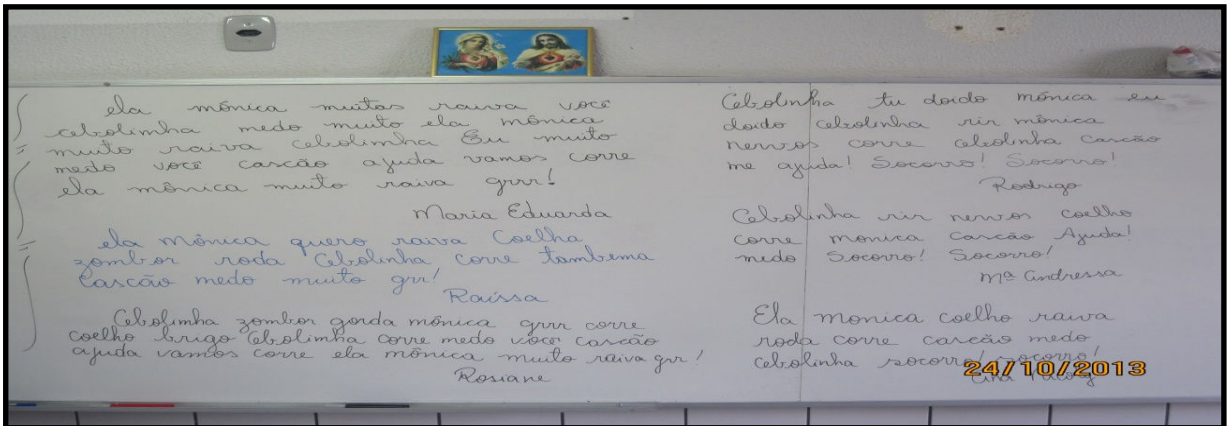 ela mônica muitas raiva você
cebolimha medo muito ela mônica
muito raiva cebolimha Eu muito
medo você cascão ajuda vamos corre
ela mônica muito raiva grrr!
Maria Eduarda
ela mônica quero raiva Coelha
zombor roda Cebolinha corre tambema
Cascão medo muito grr!
Raissa
Cebolimha zombor gorda mônica grrr corre
coelho brigo Cebolimha corre medo você cascão
ajuda vamos corre ela mônica muito raiva grr!
Rosiane
Cebolinha tu doido mônica eu
doido cebolinha rir mônica
nervos corre cebolinha Cascão
me ajuda! Socorro! Socorro!
Rodrigo
Cebolinha rir nervos coelho
corre monica Cascão Ajuda!
medo Socorro! Socorro!
Mª Andressa
Ela monica coelho raiva
roda corre cascão medo
cebolinha socorro! socorro!
24/10/2013